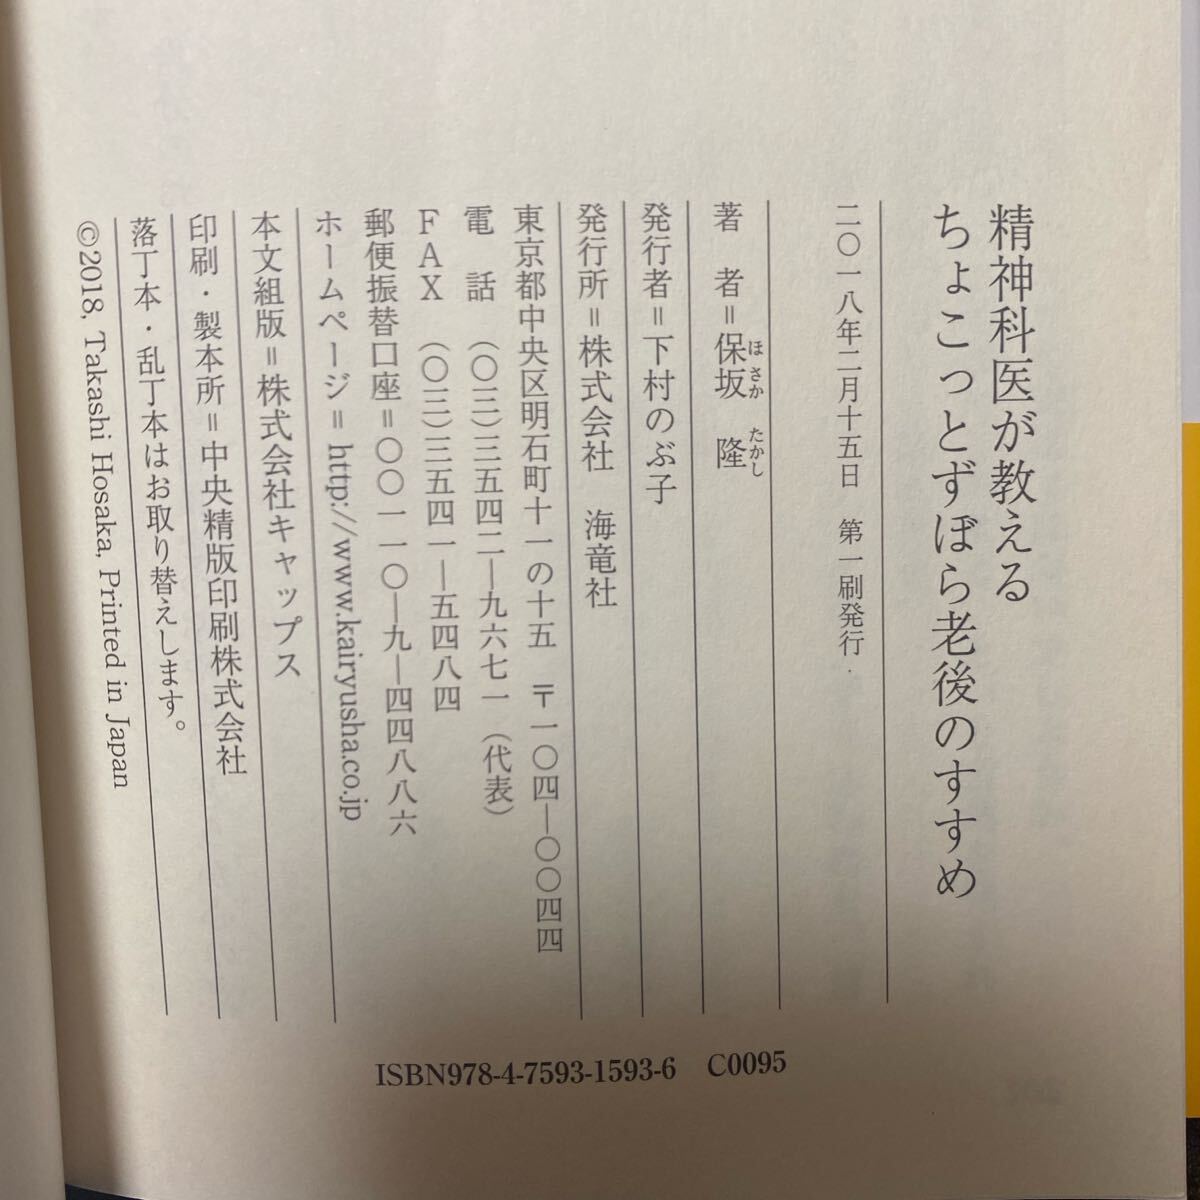 精神科医が教える
ちょこっとずぼら老後のすすめ
二〇一八年二月十五日　第一刷発行
著　者＝保坂　隆
ほさか　たかし
発行者＝下村のぶ子
発行所＝株式会社　海竜社
東京都中央区明石町十一の十五　〒一〇四―〇〇四四
電　話　（〇三）三五四二―九六七一（代表）
ＦＡＸ　（〇三）三五四一―五四八四
郵便振替口座＝〇〇一一〇―九―四四八八六
ホームページ＝http://www.kairyusha.co.jp
本文組版＝株式会社キャップス
印刷・製本所＝中央精版印刷株式会社
落丁本・乱丁本はお取り替えします。
©2018, Takashi Hosaka, Printed in Japan
ISBN978-4-7593-1593-6　C0095